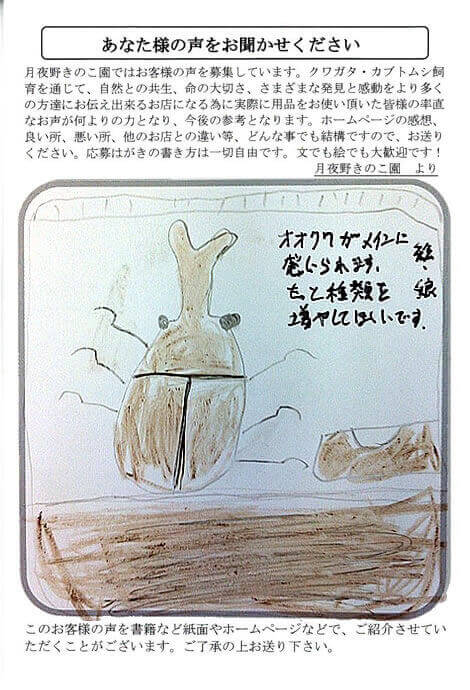 あなた様の声をお聞かせください
月夜野きのこ園ではお客様の声を募集しています。クワガタ・カブトムシ飼
育を通じて、自然との共生、命の大切さ、さまざまな発見と感動をより多く
の方達にお伝え出来るお店になる為に実際に用品をお使い頂いた皆様の率直
なお声が何よりの力となり、今後の参考となります。ホームページの感想、
良い所、悪い所、他のお店との違い等、どんな事でも結構ですので、お送り
ください。応募はがきの書き方は一切自由です。文でも絵でも大歓迎です！
月夜野きのこ園　より
オオクワがメインに
感じられます。
もっと種類を
増やしてほしいです。
絵・娘
このお客様の声を書籍など紙面やホームページなどで、ご紹介させてい
ただくことがございます。ご了承の上お送り下さい。